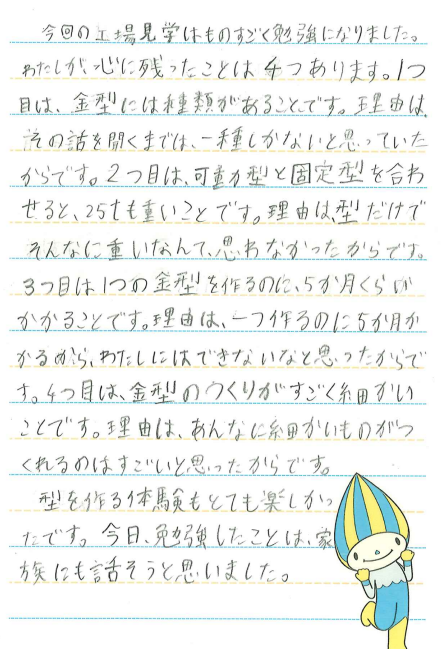 今回の工場見学はものすごく勉強になりました。
わたしが、心に残ったことは4つあります。1つ
目は、金型には種類があることです。理由は、
その話を聞くまでは、一種しかないと思っていた
からです。2つ目は、可動型と固定型を合わ
せると、25tも重いことです。理由は、型だけで
そんなに重いなんて、思わなかったからです。
3つ目は1つの金型を作るのに、5か月くらい
かかることです。理由は、一つ作るのに5か月か
かるから、わたしにはできないなと思ったからで
す。4つ目は、金型のつくりがすごく細かい
ことです。理由は、あんなに細かいものがつ
くれるのはすごいと思ったからです。
型を作る体験もとても楽しかっ
たです。今日、勉強したことは、家
族にも話そうと思いました。